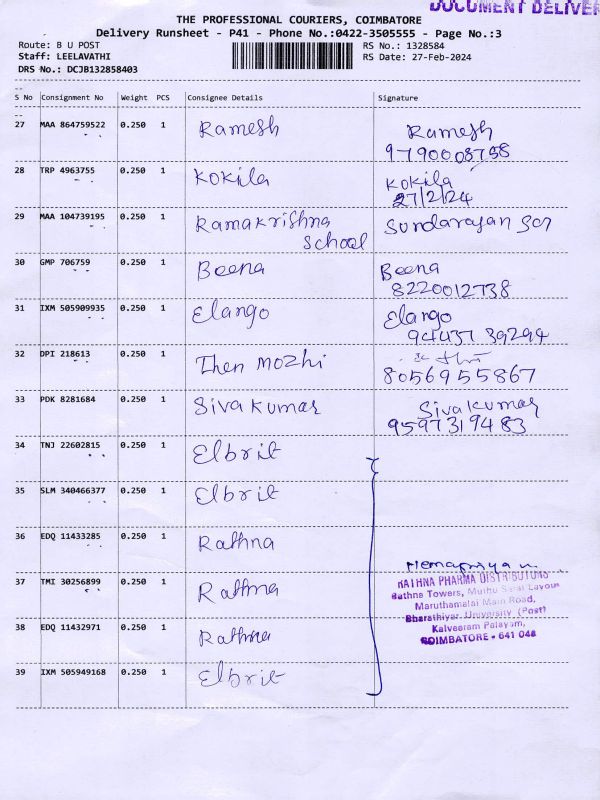 DOCUMENT DELIVER
THE PROFESSIONAL COURIERS, COIMBATORE
Delivery Runsheet - P41 - Phone No.:0422-3505555 - Page No.:3
Route: B U POST RS No.: 1328584
Staff: LEELAVATHI RS Date: 27-Feb-2024
DRS No.: DCJB132858403
S No Consignment No Weight PCS Consignee Details Signature
27 MAA 864759522 0.250 1 Ramesh Ramesh
9790008758
28 TRP 4963755 0.250 1 Kokila Kokila
27/2/24
29 MAA 104739195 0.250 1 Ramakrishna Sundararajan
School
30 GMP 706759 0.250 1 Beena Beena
8220012738
31 IXM 505909935 0.250 1 Elango Elango
94437 39294
32 DPI 218613 0.250 1 Then Mozhi
8056955867
33 PDK 8281684 0.250 1 Sivakumar Sivakumar
9597319483
34 TNJ 22602815 0.250 1 Elbrit
35 SLM 340466377 0.250 1 Elbrit
36 EDQ 11433285 0.250 1 Rathna
Hemapriya
37 TMI 30256899 0.250 1 Rathna RATHNA PHARMA DISTRIBUTORS
Rathna Towers, Muthu Layout
Maruthamalai Main Road,
38 EDQ 11432971 0.250 1 Rathna Bharathiyar University (Post)
Kalveeram Palayam,
COIMBATORE - 641 046
39 IXM 505949168 0.250 1 Elbrit